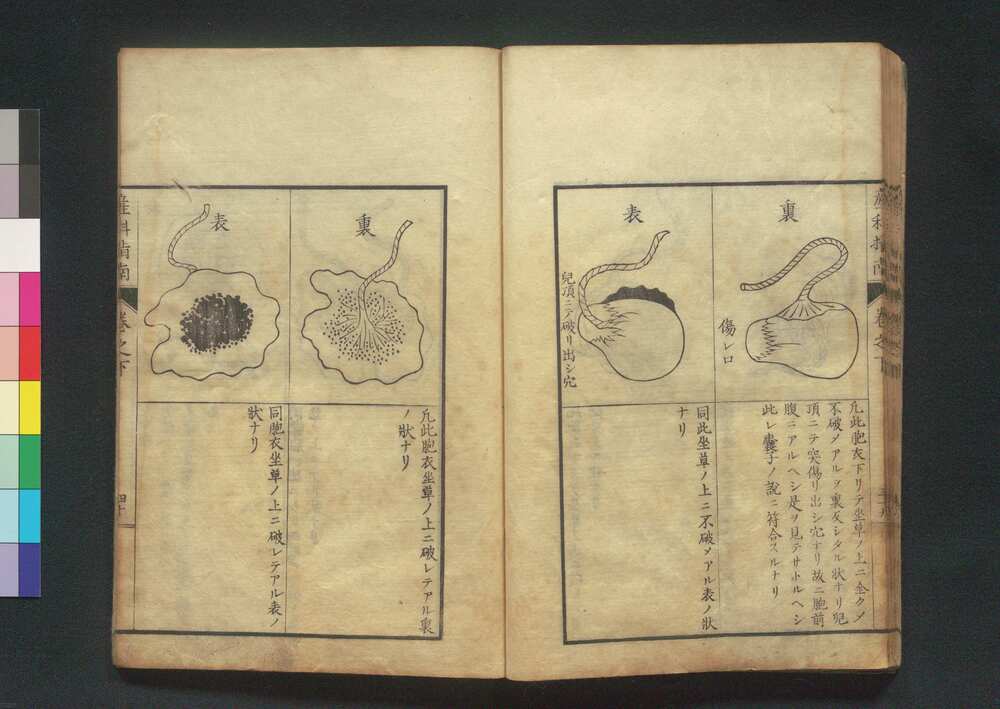 裏
傷レ口
凢此胞衣下リテ坐草ノ上ニ全クメ
不破メアルヲ裏反シタル狀ナリ児
頂ニテ突傷リ出シ穴ナリ故ニ胞前
腹ニアルヘシ是ヲ見テサトルヘシ
此レ囊子ノ說ニ符合スルナリ
表
兒頂ニテ破リ出シ穴
同此坐草ノ上ニ不破メアル表ノ狀
ナリ
裏
凢此胞衣坐草ノ上ニ破レテアル裏
ノ狀ナリ
表
同胞衣坐草ノ上ニ破レテアル表ノ
狀ナリ
産科指南
卷之下
四十